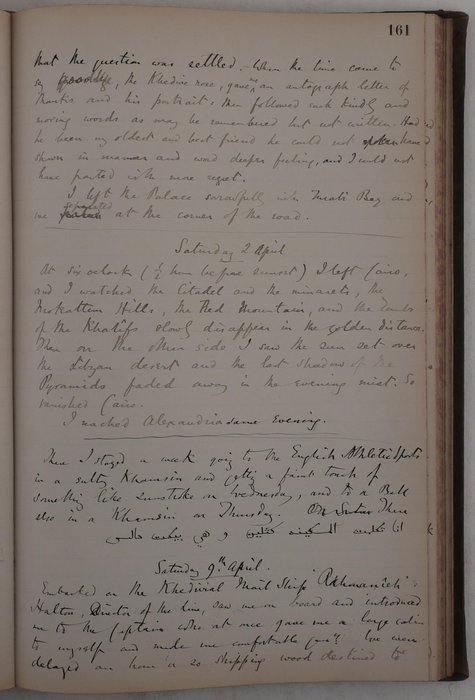 161
that the question was settled. – When the time came to
say goodbye, the Khedive rose, gave me an autograph letter of
thanks and his portrait: then followed such kindly and
moving words as may be remembered but not written. Had
he been my oldest and best friend he could not have
shown in manner and word deeper feeling, and I could not
have parted with more regret.
I left the Palace sorrowfully with Turabi Bey and
we separated at the corner of the road.
Saturday 2 April
At six oclock (½ hour before sunset) I left Cairo,
and I watched the Citadel and the minarets, the
Mokattam Hills, the Red Mountain, and the Tombs
of the Khalifs slowly disappear in the golden distance.
Then on the other side I saw the sun set over
the Libyan desert and the last shadow of the
Pyramids faded away in the evening mist. So
vanished Cairo.
I reached Alexandria same evening.
Then I stayed a week going to the English Athletic Sports
in a sultry Khamsin and getting a faint touch of
something like sunstroke on Wednesday, and to a Ball
also in a Khamsin on Thursday. There
Saturday 9th April.
Embarked on the Khedivial Mail Ship "Rahmanieh":
Halton, Director of the Line, saw me on board and introduced
me to the Captain who at once gave me a large cabin
to myself and made me comfortable. We were
delayed an hour or so shipping wood destined to